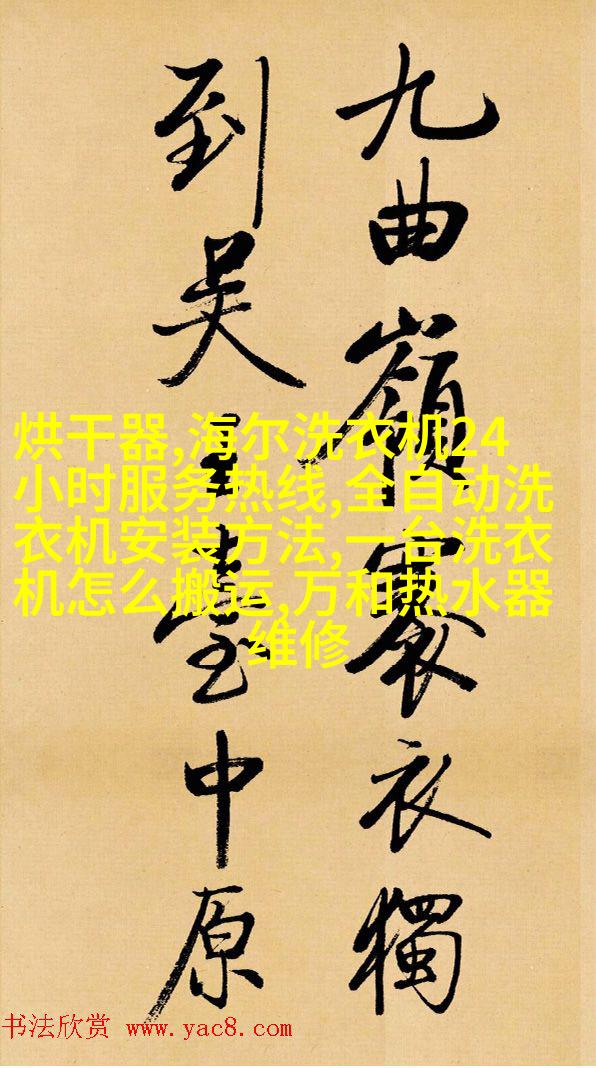 九曲嶺褰衣獨
到吴王臺中原
烘干器,海尔洗衣机24
小时服务热线,全自动洗
衣机安装方法,一台洗衣
机怎么搬运,万和热水器
维修
书法欣赏 www.yac8.com